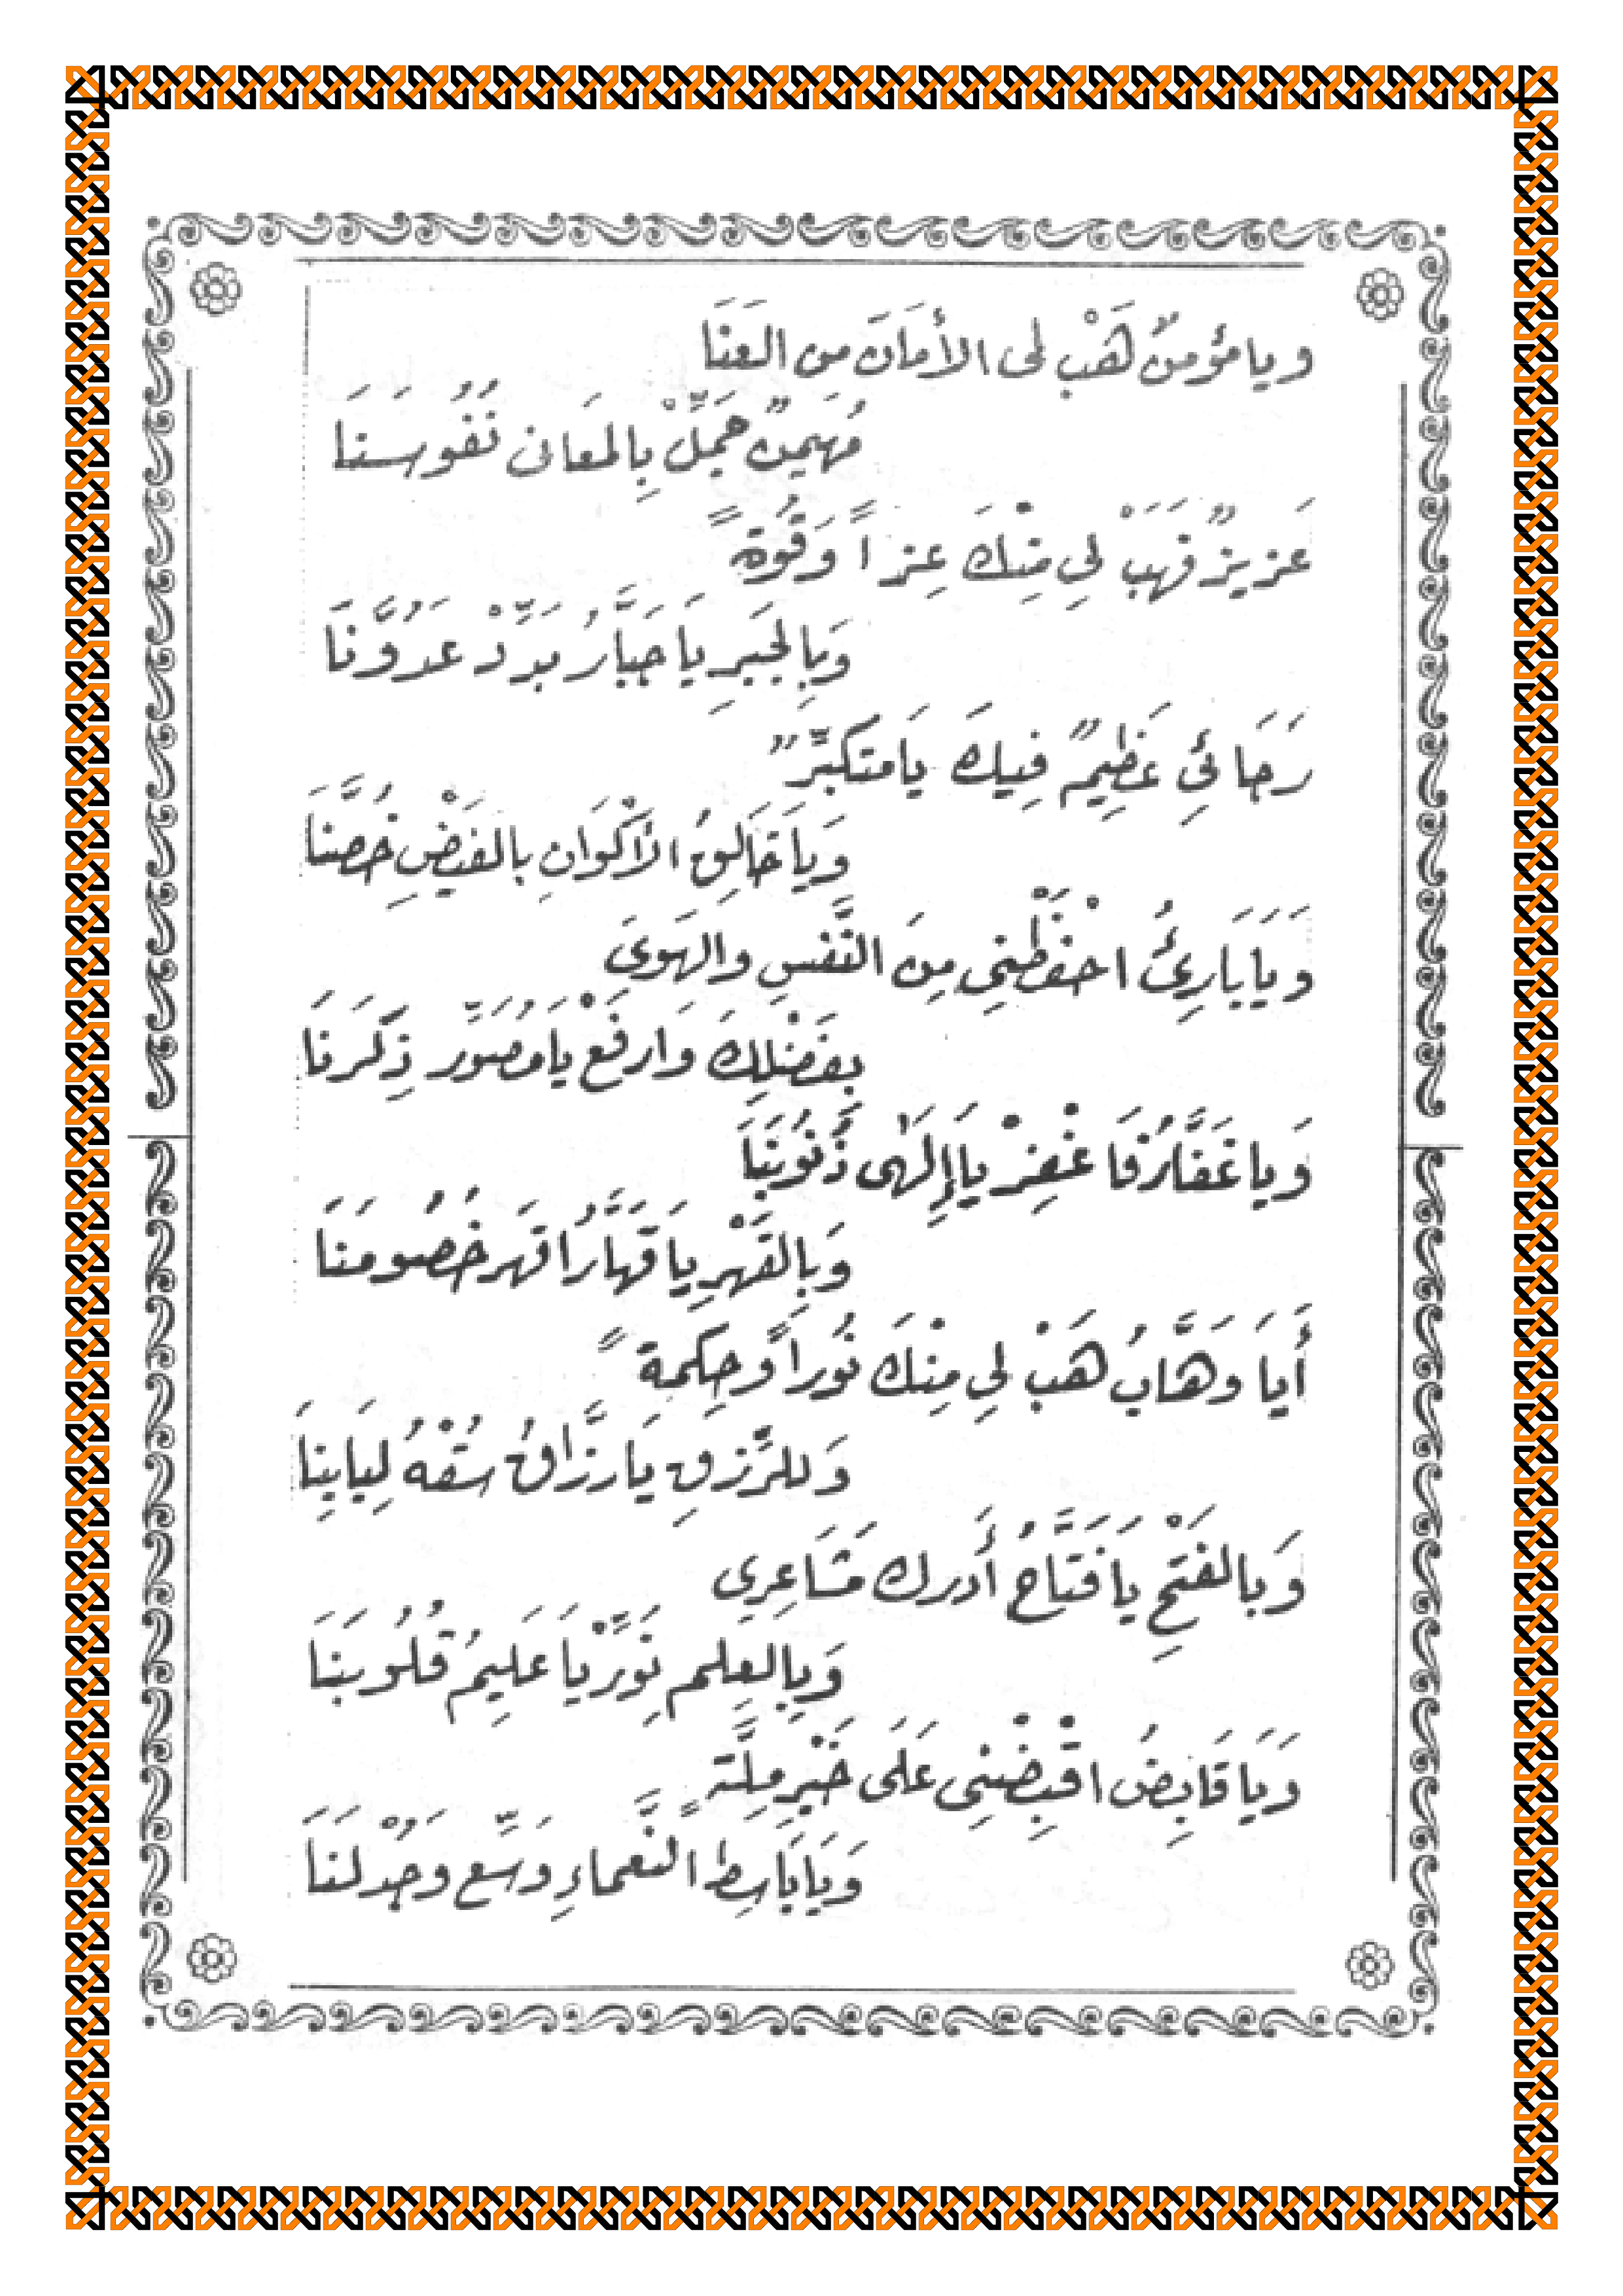 ويا مؤمنٌ هَبْ لى الأمَانَ من العَنَا
مُهَيمِنٌ جَمِّلْ بِالمَعَانى نُفُوسَنَا
عَزيزٌ فَهَبْ لِي مِنْكَ عِزاً وَقُوةً
وَبِالجَبَرِ يَا جَبَّارُ بَدِّدْ عَدُوَّنَا
رَجَائِي عَظِيمٌ فِيكَ يَا مَتكبِّرٌ
وَيَا خَالِقُ الأَكْوَانِ بالفَيْضِ خُصَّنَا
ويَا بَارِئُ احْفَظْنِي مِنَ النَّفسِ والهَوىَ
بِفَضْلِكَ وَارفَعْ يَا مُصَوِّر ذِكَرنَا
وَيا غَفَّارُ فَا غْفِرْ يَا إِلَهٰى ذُنُوبَنَا
وَبِالقَهْرِ يَا قَهَّارُ اقهَر خُصُومَنَا
أَيَا وَهَّابُ هَبْ لِي مِنْكَ نُوراً وَحِكمةً
وَللرِّزقِ يَا رَزَّاقُ سُقْهُ لِبَابِنَا
وَبالفَتْحِ يا فَتَّاحُ أَدرك مَشَاعِرِي
وَبِالعِلمِ نَوِّرْ يَا عَلِيمُ قُلُوبَنا
وَيَا قَابِضُ اقْبِضْنِى عَلَى خَيْرِ مِلَّةٍ
وَيَا بَاسِطَ النَّعماءِ وَسِّع وَجُدْ لَنَا